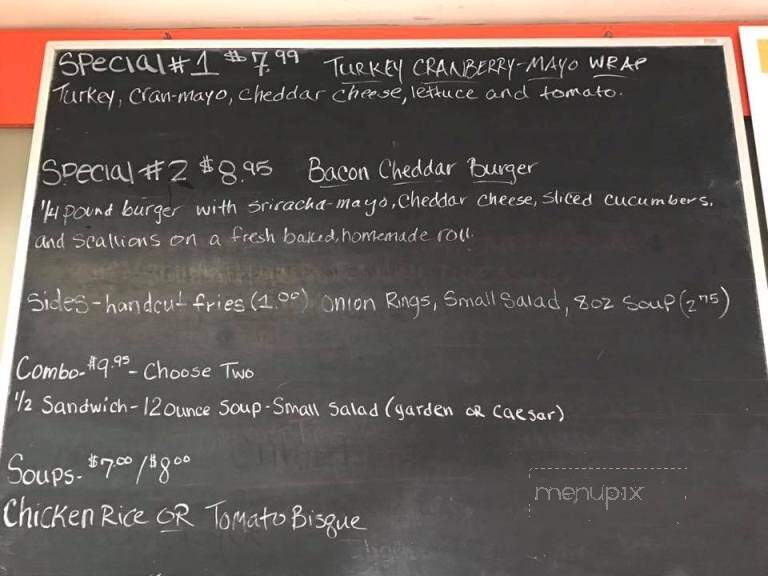 Special #1 $7.99 Turkey Cranberry-Mayo Wrap
Turkey, Cran-mayo, cheddar cheese, lettuce and tomato.
Special #2 $8.95 Bacon Cheddar Burger
1/4 pound burger with sriracha-mayo, cheddar cheese, sliced cucumbers,
and scallions on a fresh baked, homemade roll.
Sides-handcut fries (1.00) Onion Rings, Small Salad, 8oz Soup (2.75)
Combo-$9.95-Choose Two
1/2 Sandwich-12ounce Soup-Small Salad (garden or Caesar)
Soups-$7.00/$8.00
menupix
Chicken Rice OR Tomato Bisque